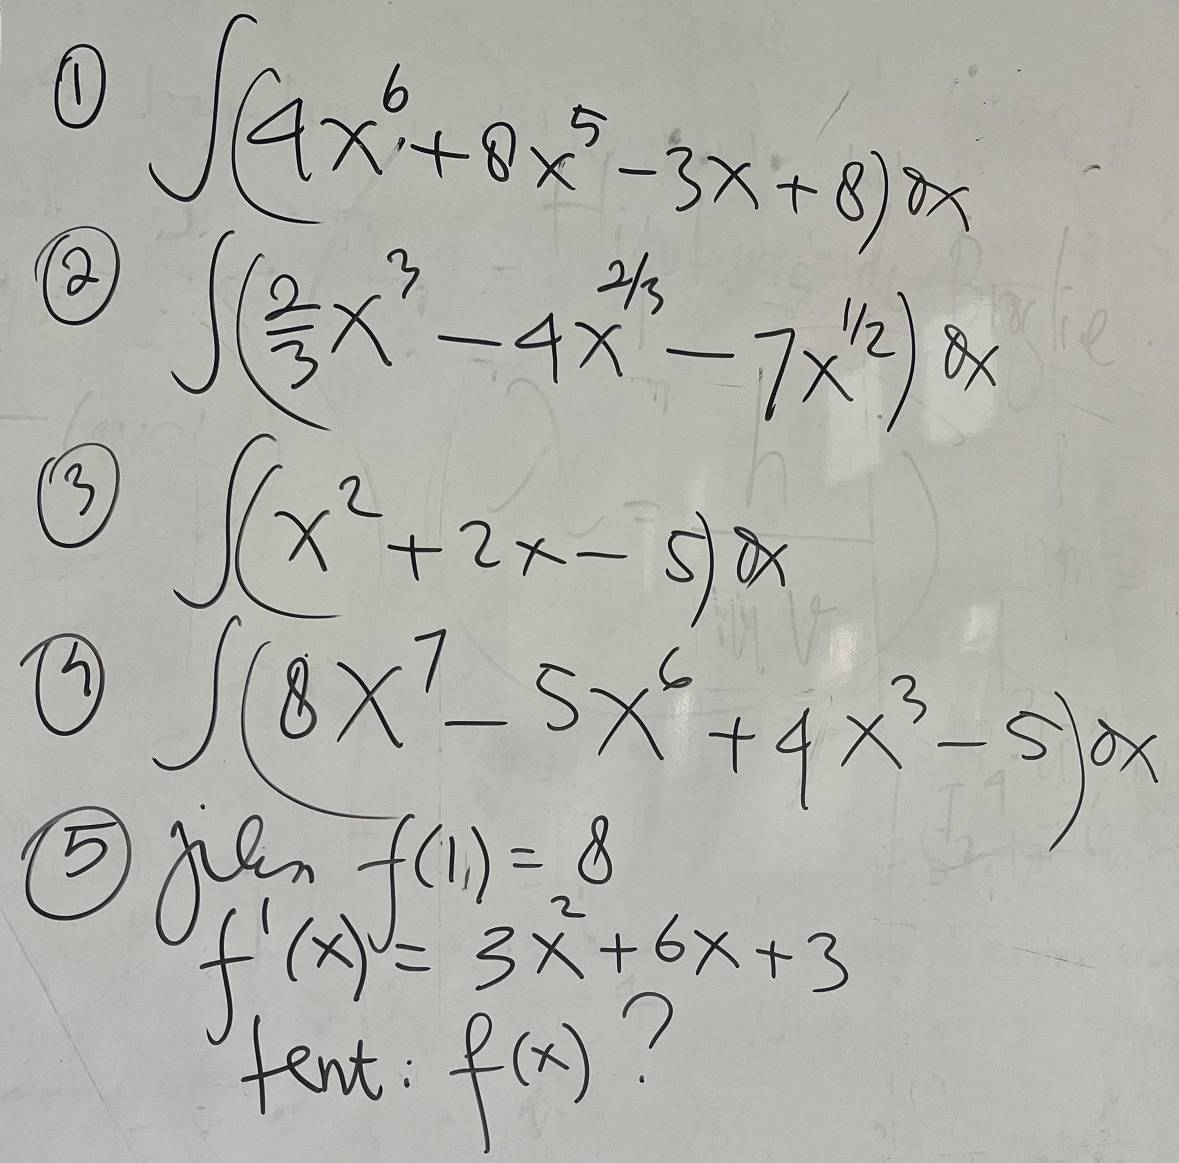 ① ∫(4x⁶ + 8x⁵ - 3x + 8) dx
② ∫(2/3 x³ - 4x^2/3 - 7x^1/2) dx
③ ∫(x² + 2x - 5) dx
④ ∫(8x⁷ - 5x⁶ + 4x³ - 5) dx
⑤ jika f(1) = 8
f'(x) = 3x² + 6x + 3
tent: f(x)?